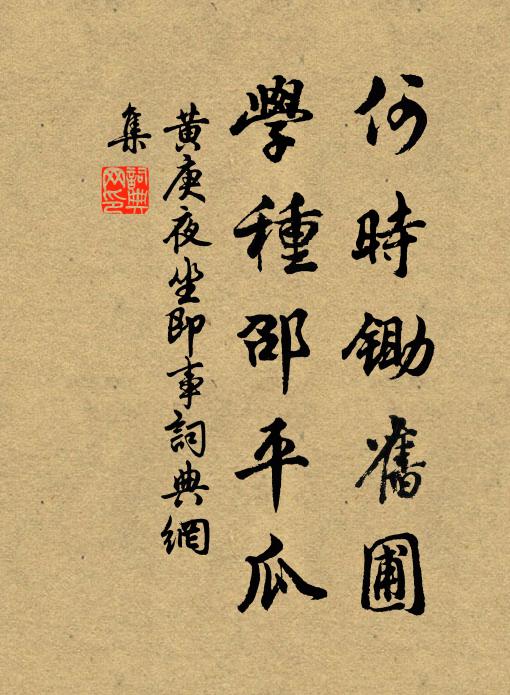 何時鋤舊圃
學種邵平瓜
黃庚夜坐即事詞典網
集
詞典
网印